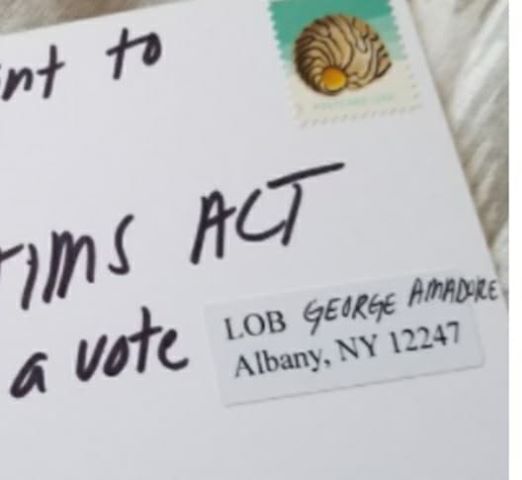 nt to
TIMS ACT
a vote
LOB GEORGE AMADORE
Albany, NY 12247